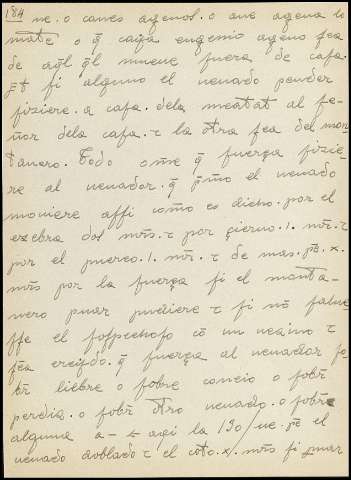 184 ne. o canes agenos. o ane agena lo
mate o q̃ caya engenio ageno sea
de aq̃l q̃l mueue fuera de casa.
p̃t si alguno el uenado prender
fiziere. a casa. dela meatat al se-
ñor dela casa. τ la otra sea del mon
tanero. Todo om̃e q̃ fuerça fizie-
re al uenador. q̃ p̃mo el uenado
mouiere assi como es dicho. por el
ezebra dos mr̃s. τ por çieruo. 1. mr̃. τ
por el puerco. 1. mr̃. τ de mas. px̃. x.
mr̃s por la fuerça si el monta-
nero puar pudiere τ si nõ salue-
sse el sospechoso cõ un uezino τ
sea creydo. q̃ fuerça al uenador so-
br̃ liebre o sobre coneio o sobr̃
perdiz. o sobr̃ otro uenado. o sobr̃
alguna a- aqi la 130/ ue. px̃ el
uenado doblado τ el coto. x. mr̃s si puar